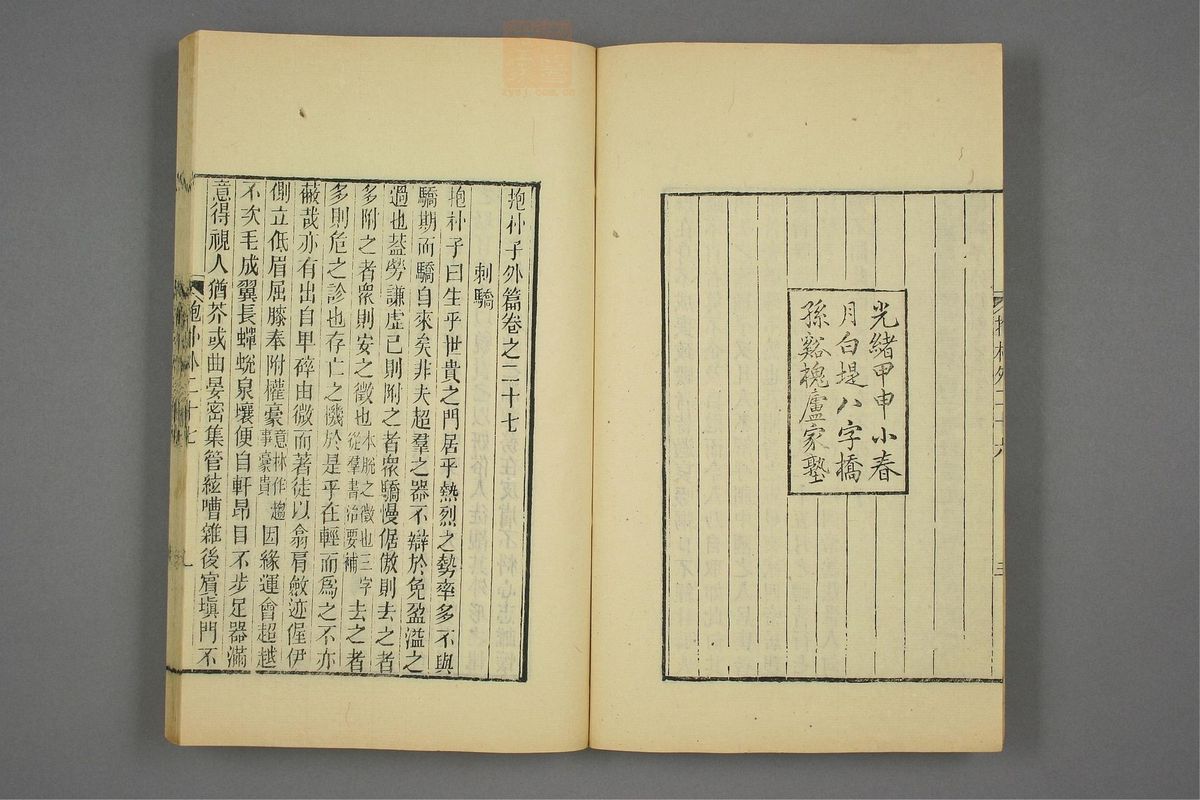 光緒甲申小春
月白堤八字橋
孫谿槐廬家塾
抱朴子外篇卷之二十七
刺驕
抱朴子曰生乎世貴之門居乎熱烈之勢率多不與
驕期而驕自來矣非夫超羣之器不辯於免盈溢之
過也蓋勞謙虛己則附之者衆驕慢倨傲則去之者
多附之者衆則安之徵也本脫之徵也三字從羣書治要補去之者
多則危之診也存亡之機於是乎在輕而爲之不亦
蔽哉亦有出自卑碎由微而著徒以翕肩斂迹偓伊
側立低眉屈膝奉附權豪意林作趨事豪貴因緣運會超越
不次毛成翼長蟬蛻泉壤便自軒昂目不步足器滿
意得視人猶芥或曲晏密集管絃嘈雜後賓塡門不
抱朴外二十七